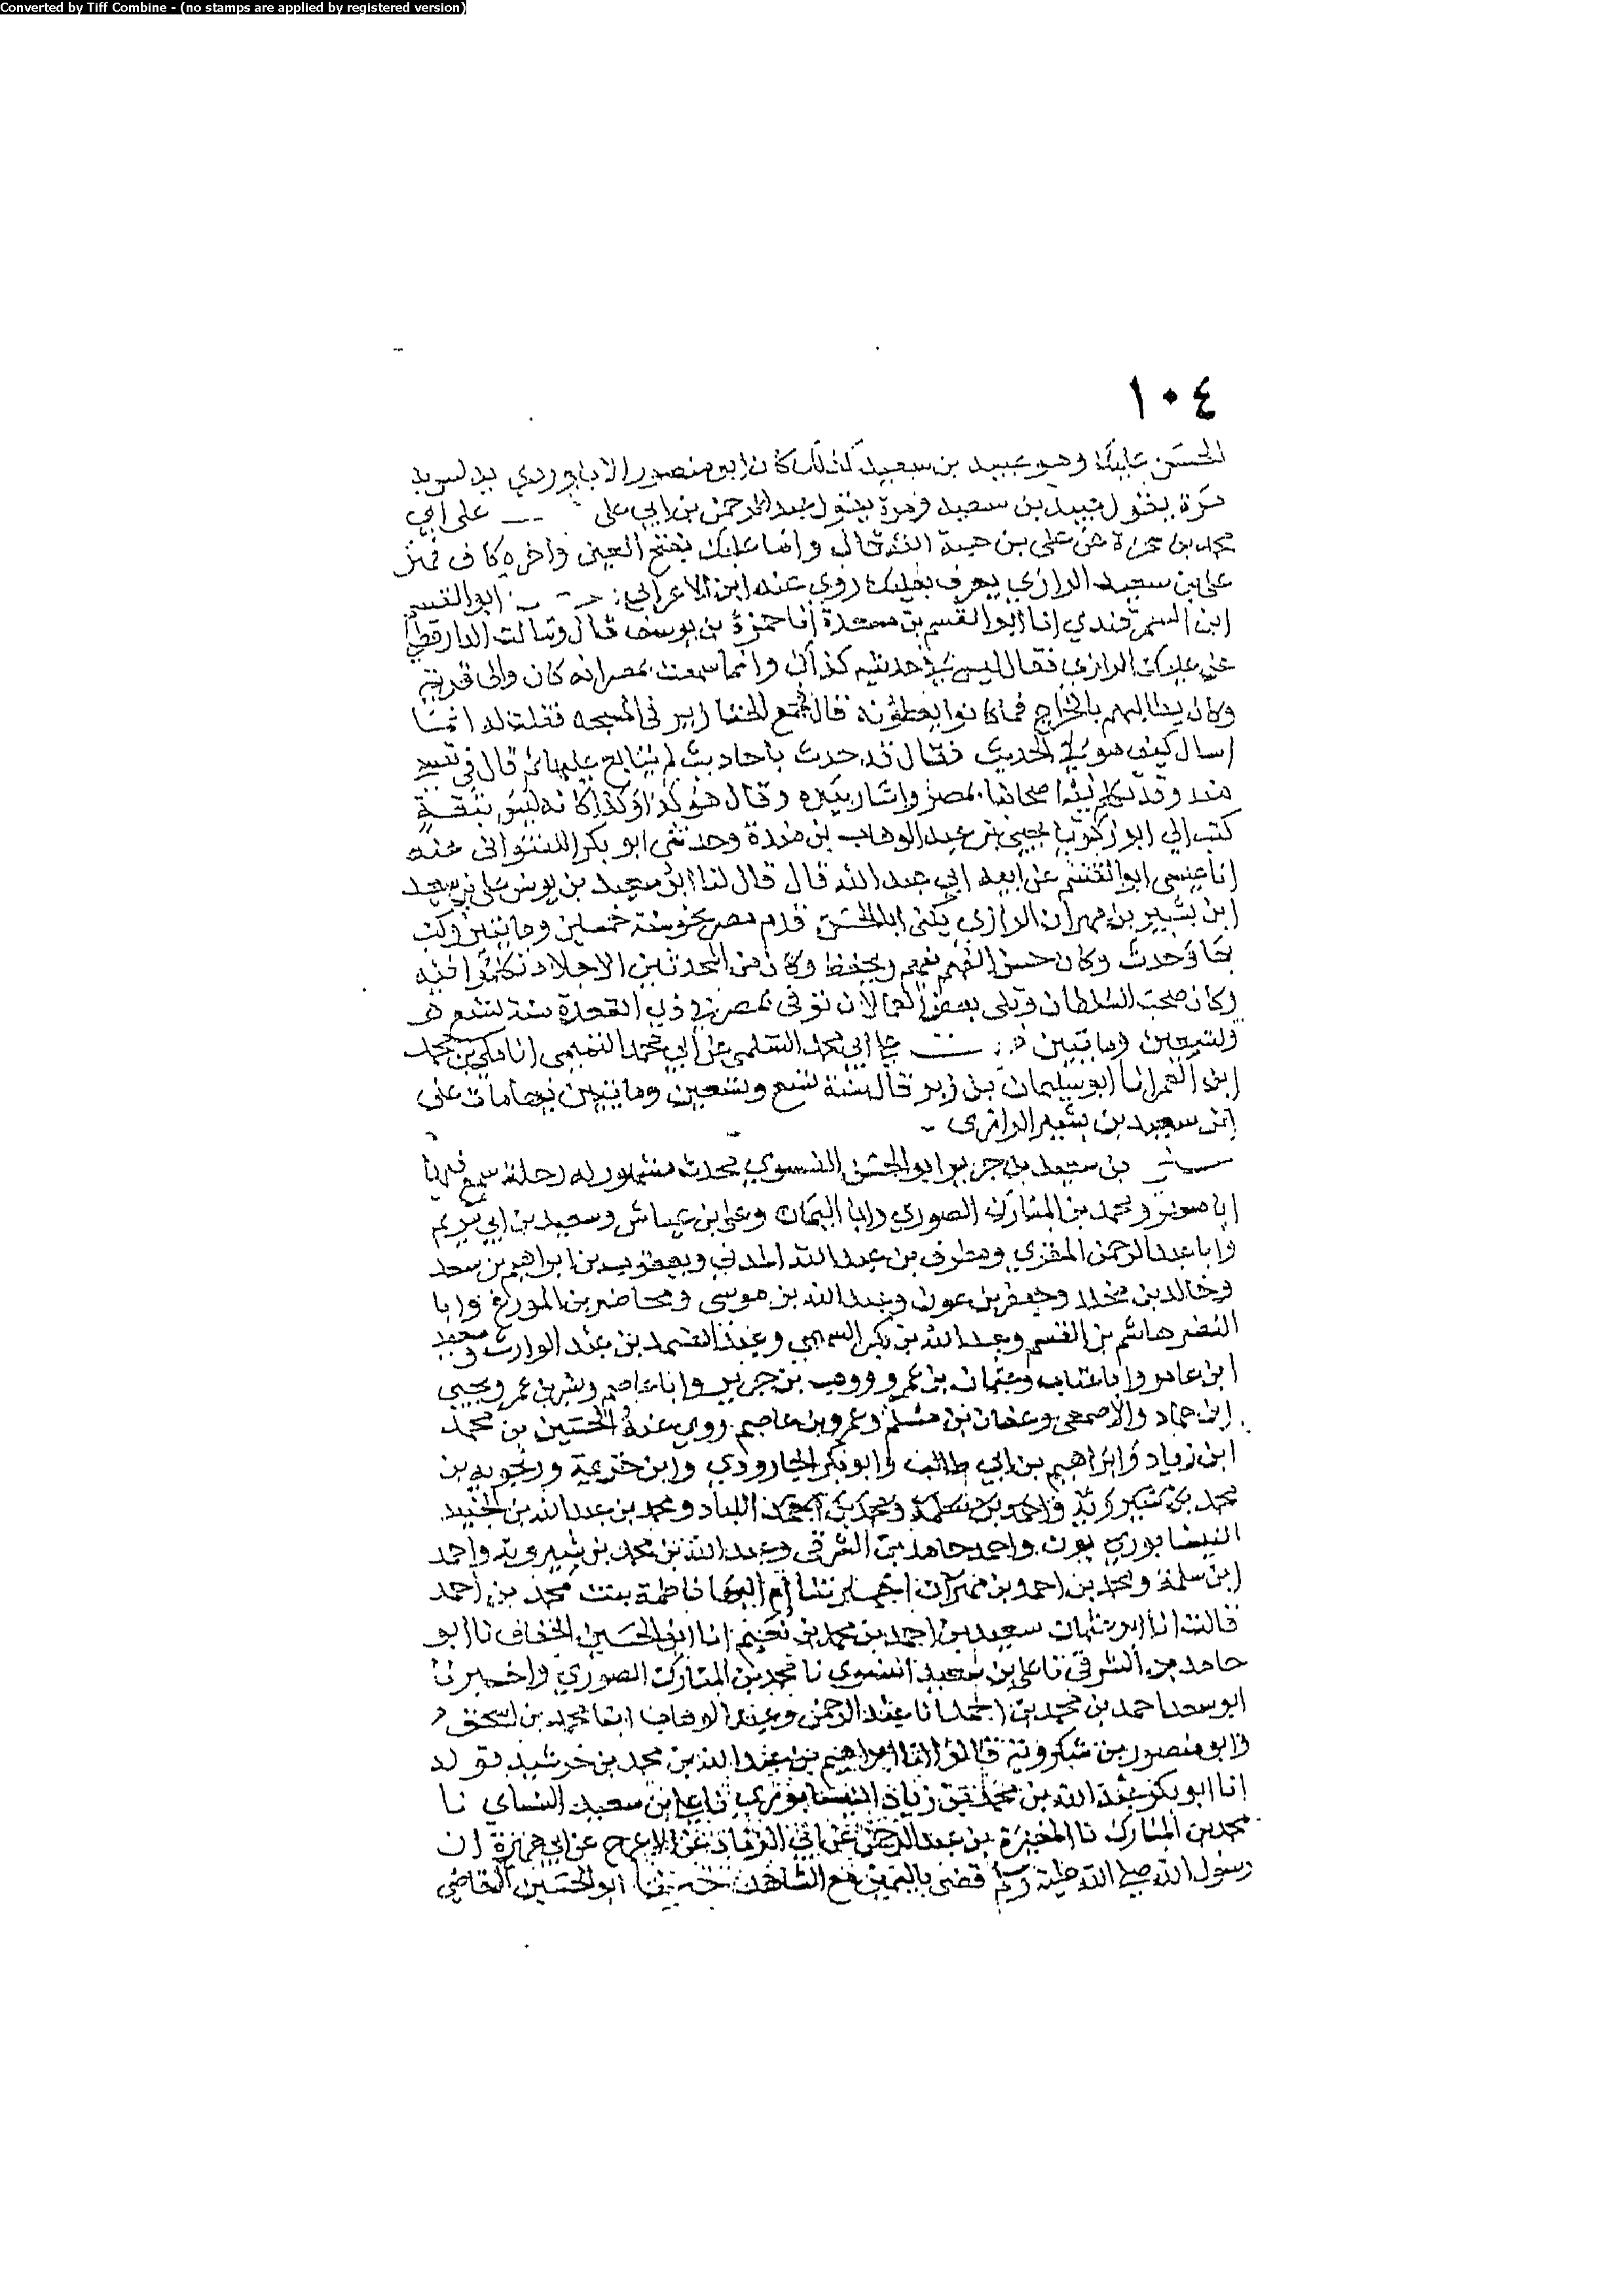 Converted by Tiff Combine - (no stamps are applied by registered version)
١٠٤
الحسن عليك وهو عبيد بن سعيد كذلك كان ابو منصور الاباوردي
مرة يقول عبيد بن سعيد ومرة يقول عبد الرحمن بن ابي علي على ابي
محمد بن حمزة عن علي بن هبة الله قال واما عليك بفتح العين واخره كاف فهو
علي بن سعيد الرازي يعرف بعليك روى عنه ابن الاعرابي ابو القسم
ابن السمرقندي انا ابو القسم بن مسعدة انا حمزة بن يوسف قال وسالت الدارقطني
عن عليك الرازي فقال ليس في حديثه كذاك وانما سمعت بمصر انه كان والي قرية
وكان يطالبهم بالخراج فما كانوا يعطونه قال فجمع الخنازير في المسجد فقلت له انما
اسال كيف هو في الحديث فقال قد حدث باحاديث لم يتابع عليها ثم قال في نفسي
منه وقد تكلم فيه اصحابنا بمصر واشار بيده وقال هو كذا وكذا كانه ليس بثقة
كتب الي ابو زكريا يحيى بن عبد الوهاب بن مندة وحدثني ابو بكر اللفتواني عنه
انا عمي ابو القسم عن ابيه ابي عبد الله قال قال لنا ابو سعيد بن يونس علي بن سعيد
ابن بشير بن مهران الرازي يكنى ابا الحسن قدم مصر نحو سنة خمسين ومايتين وكتب
بها وحدث وكان حسن الفهم يفهم ويحفظ وكان من المحدثين الاجلاد تكلموا فيه
وكان صحب السلطان وولي بعض العمالات توفي بمصر في ذي القعدة سنة تسع
وتسعين ومايتين على ابي محمد السلمي عن ابي محمد التميمي انا مكي بن محمد
ابن الغمر انا ابو سليمان بن زبر قال سنة تسع وتسعين ومايتين فيها مات علي
ابن سعيد بن بشير الرازي
بن سعيد بن جرير ابو الحسن النسوي محدث مشهور له رحلة سمع فيها
ابا مسهر ومحمد بن المبارك الصوري وابا اليمان وعلي بن عياش وسعيد بن ابي مريم
وابا عبد الرحمن المقري ومطرف بن عبد الله المدني ويعقوب بن ابراهيم بن سعد
وخالد بن مخلد وجعفر بن عون وعبد الله بن موسى ومحاضر بن المورع وابا
النضر هاشم بن القسم وعبد الله بن بكر السهمي وعبد الصمد بن عبد الوارث وسعيد
ابن عامر وابا عتاب وعثمان بن عمر ووهب بن جرير وابا عاصم وبشر بن عمر ويحيى
ابن حماد والاصمعي وعفان بن مسلم وعمرو بن عاصم روى عنه الحسين بن محمد
ابن زياد وابراهيم بن ابي طالب وابو بكر الجارودي وابن خزيمة وزنجويه بن
محمد اللباد ومحمد بن عبد الله بن الجنيد
النيسابوريون واحمد حامد بن الشرقي وعبد الله بن محمد بن شيرويه واحمد
ابن سلمة ومحمد بن احمد بن مهران اخبرتنا ام البها فاطمة بنت محمد بن احمد
قالت انا ابو عثمان سعيد بن احمد بن محمد بن نعيم انا ابو الحسين الخفاف نا ابو
حامد بن الشرقي نا علي بن سعيد النسوي نا محمد بن المبارك الصوري واخبرنا
ابو سعد احمد بن محمد بن احمد انا عبد الرحمن وعبد الوهاب ابنا محمد بن اسحق
وابو منصور بن شكرويه قالوا انا ابراهيم بن عبد الله بن محمد بن خرشيد قوله
انا ابو بكر عبد الله بن محمد بن زياد النيسابوري نا علي بن سعيد النساي نا
محمد بن المبارك نا المغيرة بن عبد الرحمن عن ابي الزناد عن الاعرج عن ابي هريرة ان
رسول الله صلى الله عليه وسلم قضى باليمين مع الشاهد ابو الحسين القاضي